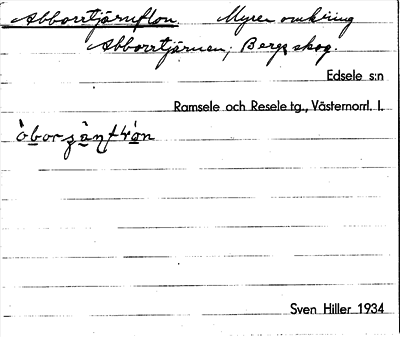 Abborrtjärnflon Myren omkring
Abborrtjärnen; Bergs skog.
Edsele s:n
Ramsele och Resele tg., Västernorrl. l.
Sven Hiller 1934